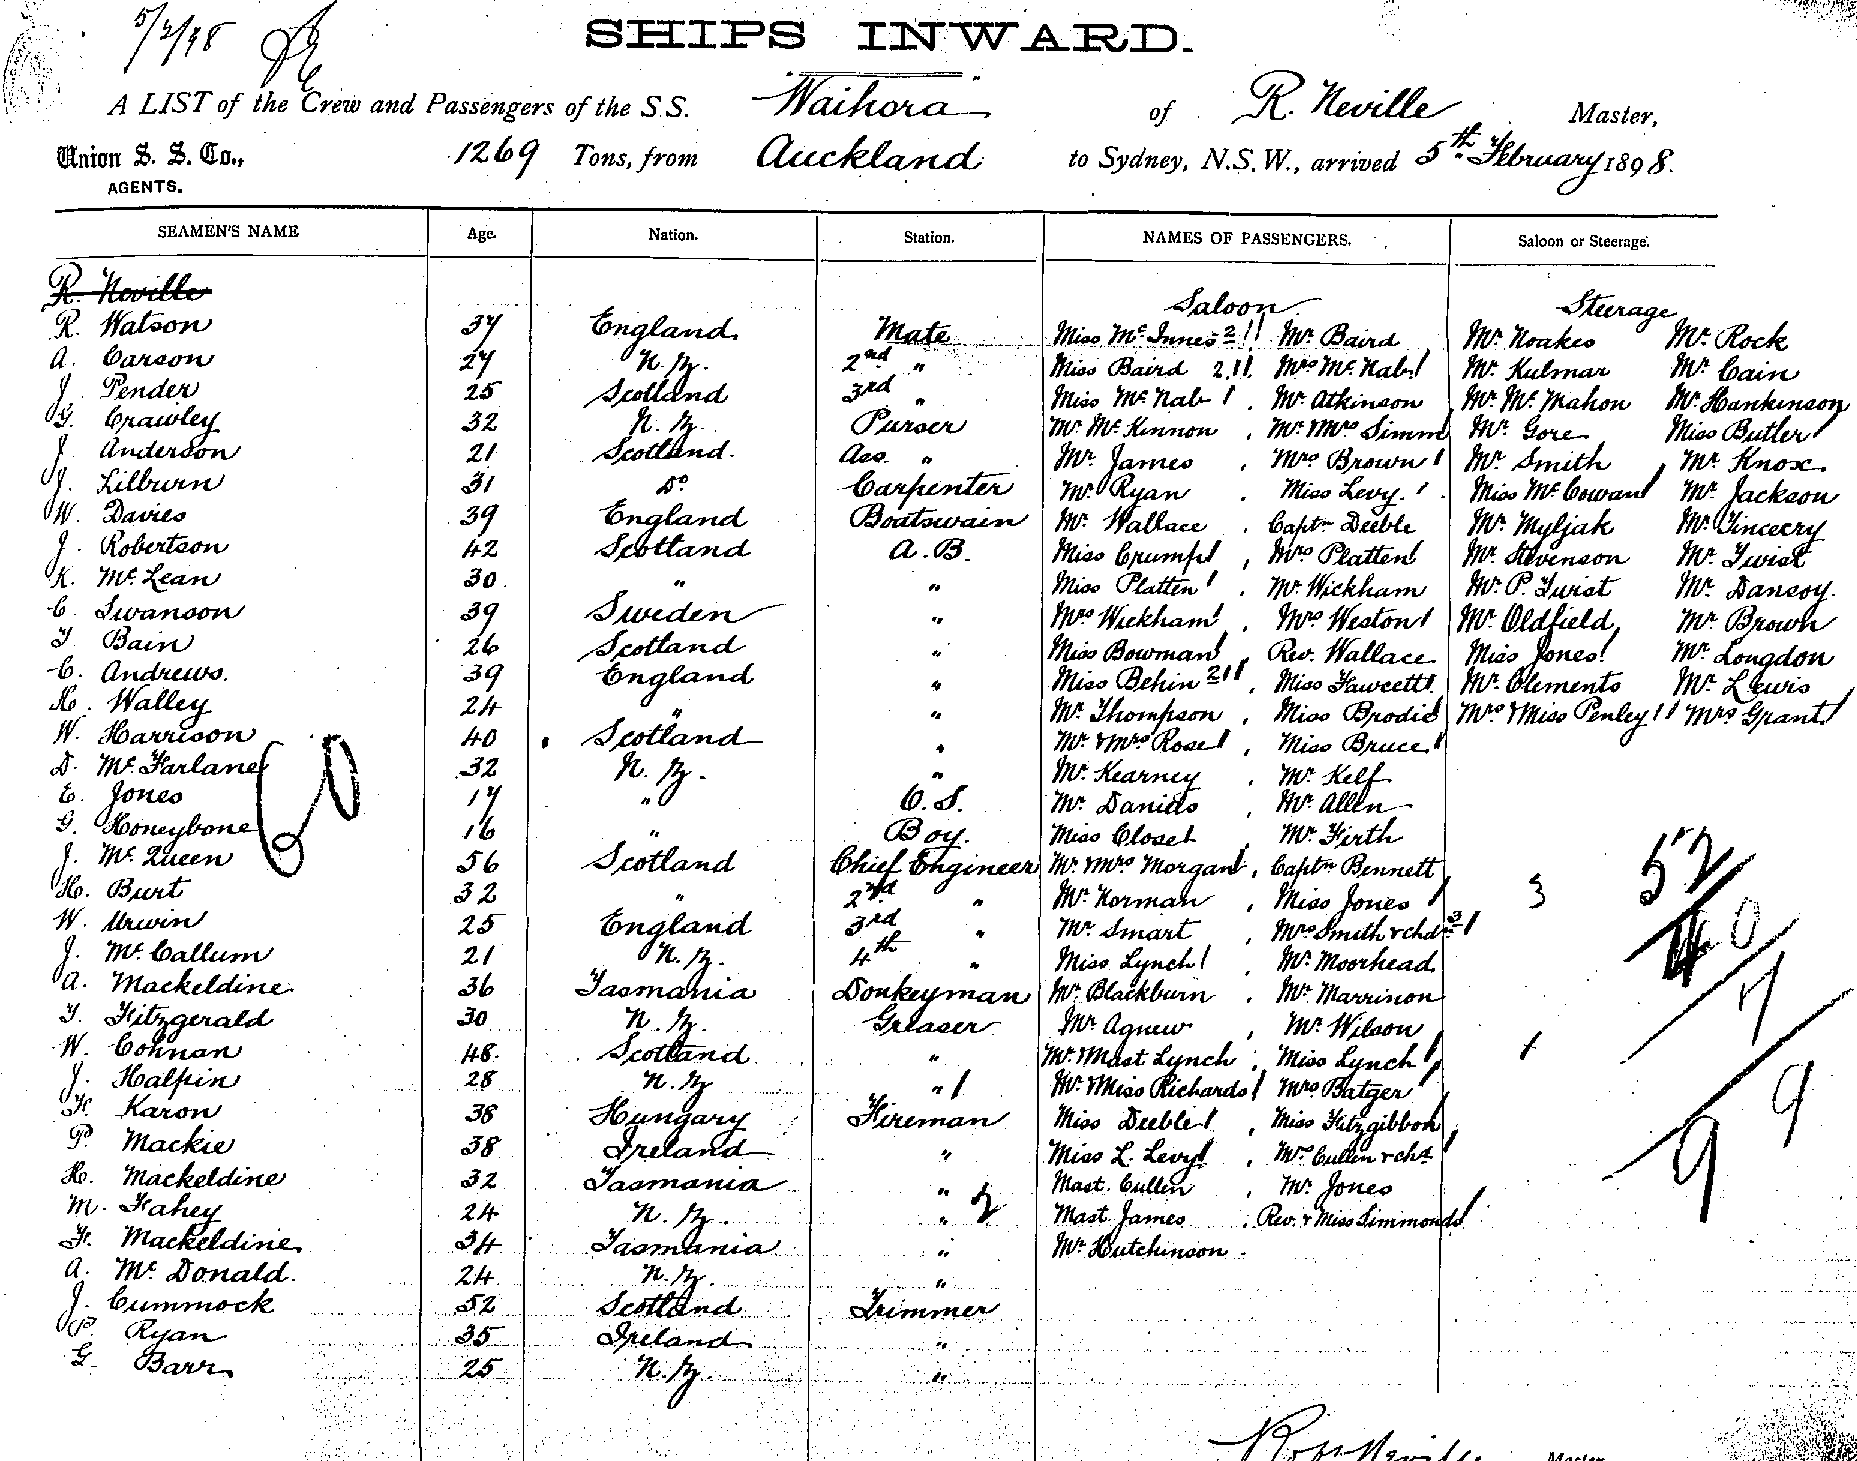 5/2/98
SHIPS INWARD.
A LIST of the Crew and Passengers of the S.S. "Waihora" of R. Neville Master,
Union S. S. Co., 1269 Tons, from Auckland to Sydney, N.S.W., arrived 5th February 1898.
AGENTS.
SEAMEN'S NAME Age. Nation. Station. NAMES OF PASSENGERS. Saloon or Steerage.
R. Neville Saloon Steerage
R. Watson 37 England Mate Miss McInnes 2 Mr Baird Mr Noakes Mr Rock
A. Carson 27 N.Z. 2nd " Miss Baird 2 Mrs McNab Mr Kulmar Mr Cain
J. Pender 25 Scotland 3rd " Miss McNab Mr Atkinson Mr McMahon Mr Hankinson
G. Crawley 32 N.Z. Purser Mr McKinnon Mr Mrs Simm Mr Gore Miss Butler
J. Anderson 21 Scotland Ass. " Mr James Mrs Brown Mr Smith Mr Knox
J. Lilburn 31 Do Carpenter Mr Ryan Miss Levy Miss McCowan Mr Jackson
W. Davies 39 England Boatswain Mr Wallace Captn Deeble Mr Myljak Mr
J. Robertson 42 Scotland A.B. Miss Crump Mrs Platten Mr Stevenson Mr Twist
K. McLean 30 " " Miss Platten Mr Wickham Mr P. Twist Mr Dansoy.
C. Swanson 39 Sweden " Mrs Wickham Mrs Weston Mr Oldfield Mr Brown
T Bain 26 Scotland " Miss Bowman Rev. Wallace Miss Jones Mr Longdon
C. Andrews. 39 England " Miss Behin 2 Miss Fawcett Mr Clements Mr Lewis
H. Walley 24 " " Mr Thompson Miss Brodie Mrs & Miss Penley Mrs Grant
W. Harrison 40 Scotland " Mr & Mrs Rose Miss Bruce
D. McFarlane 32 N.Z. " Mr Kearney Mr Kelf
E. Jones 17 " O.S. Mr Daniels Mr Allen
G. Honeybone 16 " Boy. Miss Closet Mr Firth
J. McQueen 56 Scotland Chief Engineer Mr Mrs Morgan Captn Bennett
H. Burt 32 " 2nd " Mr Norman Miss Jones 3 52
W. Urwin 25 England 3rd " Mr Smart Mrs Smith & chdn 3 40
J. McCallum 21 N.Z. 4th " Miss Lynch Mr Moorhead
A. Mackeldine 36 Tasmania Donkeyman Mr Blackburn Mr Marrinon 7
T. Fitzgerald 30 N.Z. Greaser Mr Agnew Mr Wilson
W. Cohnan 48 Scotland " Mr & Mast Lynch Miss Lynch
J. Halpin 28 N.Z. " Mr & Miss Richards Mrs Batger 99
F. Karon 38 Hungary Fireman Miss Deeble Miss Fitzgibbon
P. Mackie 38 Ireland " Miss L. Levy Mrs Cullen & chd
H. Mackeldine 32 Tasmania " Mast. Cullen Mr Jones
M. Fahey 24 N.Z. " 2 Mast James Rev. & Miss Simmonds
Fr. Mackeldine 34 Tasmania " Mr Hutchinson
A. McDonald. 24 N.Z. "
J. Cummock 52 Scotland Trimmer
P. Ryan 35 Ireland "
G. Barr 25 N.Z. "
Robt Neville Master